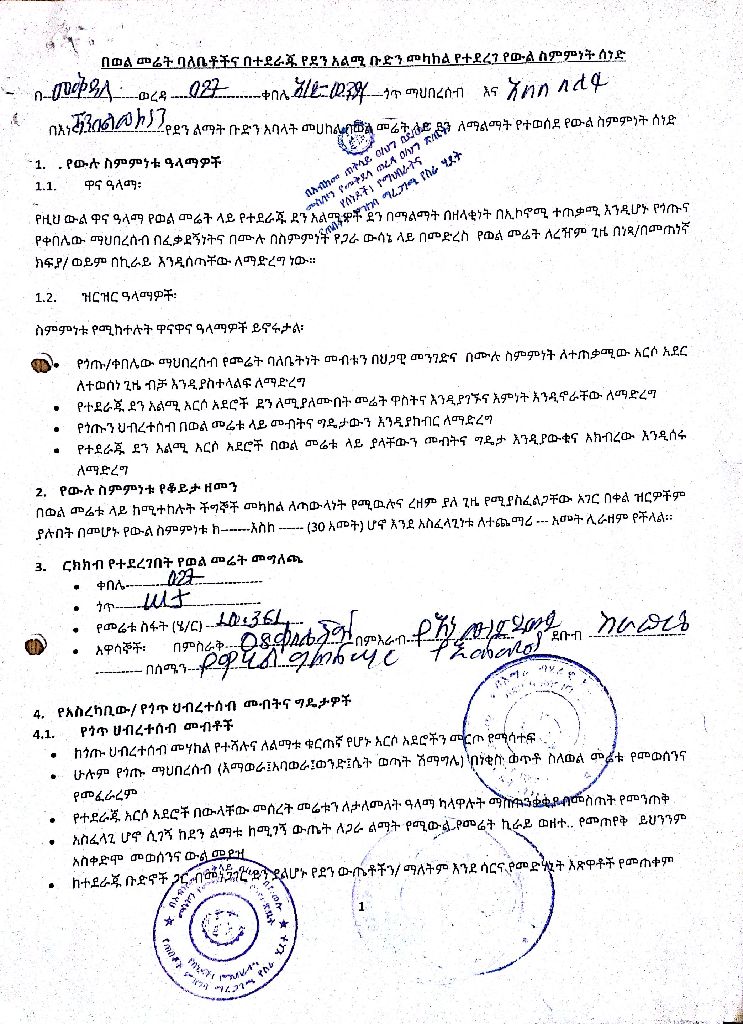 በወል መሬት ባለቤቶችና በተደራጁ የደን አልሚ ቡድን መካከል የተደረገ የውል ስምምነት ሰነድ
በ መቅደላ ወረዳ 027 ቀበሌ ጎጥ ማህበረሰብ እና
በእነ የደን ልማት ቡድን አባላት መሀከል በወል መሬት ላይ ደን ለማልማት የተወሰደ የውል ስምምነት ሰነድ
1. . የውሉ ስምምነቱ ዓላማዎች
1.1. ዋና ዓላማ፡
የዚህ ውል ዋና ዓላማ የወል መሬት ላይ የተደራጁ ደን አልሚዎች ደን በማልማት በዘላቂነት በኢኮኖሚ ተጠቃሚ እንዲሆኑ የጎጡና
የቀበሌው ማህበረሰብ በፈቃደኝነትና በሙሉ በስምምነት የጋራ ውሳኔ ላይ በመድረስ የወል መሬት ለረዥም ጊዜ በነጻ/በመጠነኛ
ክፍያ/ ወይም በኪራይ እንዲሰጣቸው ለማድረግ ነው።
1.2. ዝርዝር ዓላማዎች፡
ስምምነቱ የሚከተሉት ዋናዋና ዓላማዎች ይኖሩታል፡
• የጎጡ/ቀበሌው ማህበረሰብ የመሬት ባለቤትነት መብቱን በህጋዊ መንገድና በሙሉ ስምምነት ለተጠቃሚው አርሶ አደር
ለተወሰነ ጊዜ ብቻ እንዲያስተላልፍ ለማድረግ
• የተደራጁ ደን አልሚ አርሶ አደሮች ደን ለሚያለሙበት መሬት ዋስትና እንዲያገኙና እምነት እንዲኖራቸው ለማድረግ
• የጎጡን ህብረተሰብ በወል መሬቱ ላይ መብትና ግዴታውን እንዲያከብር ለማድረግ
• የተደራጁ ደን አልሚ አርሶ አደሮች በወል መሬቱ ላይ ያላቸውን መብትና ግዴታ እንዲያውቁና አክብረው እንዲሰሩ
ለማድረግ
2. የውሉ ስምምነቱ የቆይታ ዘመን
በወል መሬቱ ላይ ከሚተከሉት ችግኞች መካከል ለጣውላነት የሚዉሉና ረዘም ያለ ጊዜ የሚያስፈልጋቸው አገር በቀል ዝርዎችም
ያሉበት በመሆኑ የውል ስምምነቱ ከ-------እስከ ------ (30 አመት) ሆኖ እንደ አስፈላጊነቱ ለተጨማሪ --- አመት ሊራዘም የችላል፡፡
3. ርክክብ የተደረገበት የወል መሬት መግለጫ
• ቀበሌ 027
• ጎጥ
• የመሬቱ ስፋት (ሄ/ር) 10.361
• አዋሳኞች፡ በምስራቅ በምእራብ ደቡብ
በሰሜን
4. የአስረካቢው/ የጎጥ ህብረተሰብ መብትና ግዴታዎች
4.1. የጎጥ ህብረተሰብ መብቶች
• ከጎጡ ህብረተሰብ መሃከል የተሻሉና ለልማቱ ቁርጠኛ የሆኑ አርሶ አደሮችን መርጦ የማሳተፍ
• ሁሉም የጎጡ ማህበረሰብ (እማወራ፤አባወራ፤ወንድ፤ሴት ወጣት ሽማግሌ) በነቂስ ወጥቶ ስለወል መሬቱ የመወሰንና
የመፈራረም
• የተደራጁ አርሶ አደሮች በውላቸው መሰረት መሬቱን ለታለመለት ዓላማ ካላዋሉት ማስጠንቀቂያ በመስጠት የመንጠቅ
• አስፈላጊ ሆኖ ሲገኝ ከደን ልማቱ ከሚገኝ ውጤት ለጋራ ልማት የሚውል የመሬት ኪራይ ወዘተ.. የመጠየቅ ይህንንም
አስቀድሞ መወሰንና ውል መያዝ
• ከተደራጁ ቡድኖች ጋር በመነጋገር ደን ያልሆኑ የደን ውጤቶችን/ ማለትም እንደ ሳርና የመድሃኒት እጽዋቶች የመጠቀም
1